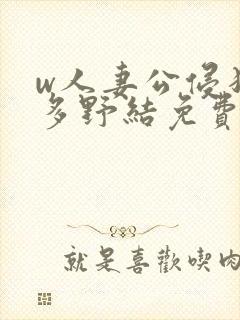 w人妻公侵犯
多野結免費
就是喜歡喫肉